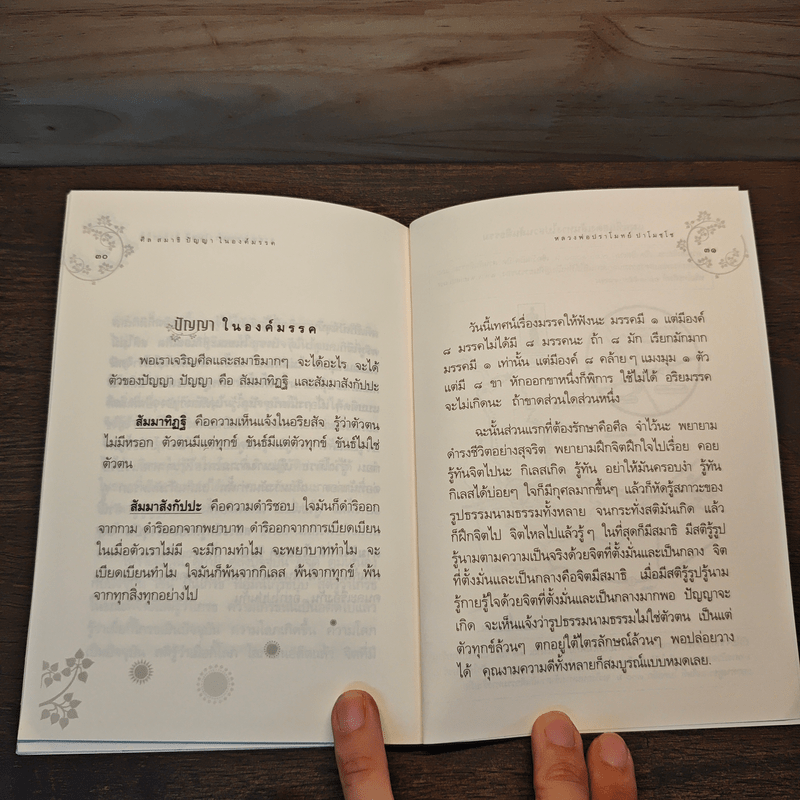 ศีล สมาธิ ปัญญา ในองค์มรรค
๓๐
ปัญญา ในองค์มรรค
พอเราเจริญศีลและสมาธิมากๆ จะได้อะไร จะได้
ตัวของปัญญา ปัญญา คือ สัมมาทิฏฐิ และสัมมาสังกัปปะ
สัมมาทิฏฐิ คือความเห็นแจ้งในอริยสัจ รู้ว่าตัวตน
ไม่มีหรอก ตัวตนมีแต่ทุกข์ ขันธ์มีแต่ตัวทุกข์ ขันธ์ไม่ใช่
ตัวตน
สัมมาสังกัปปะ คือความดำริชอบ ใจมันก็ดำริออก
จากกาม ดำริออกจากพยาบาท ดำริออกจากการเบียดเบียน
ในเมื่อตัวเราไม่มี จะมีกามทำไม จะพยาบาททำไม จะ
เบียดเบียนทำไม ใจมันก็พ้นจากกิเลส พ้นจากทุกข์ พ้น
จากทุกสิ่งทุกอย่างไป
หลวงพ่อปราโมทย์ ปาโมชฺโช
๓๑
วันนี้เทศน์เรื่องมรรคให้ฟังนะ มรรคมี ๑ แต่มีองค์
๘ มรรคไม่ได้มี ๘ มรรคนะ ถ้า ๘ มัก เรียกมักมาก
มรรคมี ๑ เท่านั้น แต่มีองค์ ๘ คล้ายๆ แมงมุม ๑ ตัว
แต่มี ๘ ขา หักออกขาหนึ่งก็พิการ ใช้ไม่ได้ อริยมรรค
จะไม่เกิดนะ ถ้าขาดส่วนใดส่วนหนึ่ง
ฉะนั้นส่วนแรกที่ต้องรักษาคือศีล จำไว้นะ พยายาม
ดำรงชีวิตอย่างสุจริต พยายามฝึกจิตฝึกใจไปเรื่อย คอย
รู้ทันจิตไปนะ กิเลสเกิด รู้ทัน อย่าให้มันครอบงำ รู้ทัน
กิเลสได้บ่อยๆ ใจก็มีกุศลมากขึ้นๆ แล้วก็หัดรู้สภาวะของ
รูปธรรมนามธรรมทั้งหลาย จนกระทั่งสติมันเกิด แล้ว
ก็ฝึกจิตไป จิตไหลไปแล้วรู้ๆ ในที่สุดก็มีสมาธิ มีสติรู้รูป
รู้นามตามความเป็นจริงด้วยจิตที่ตั้งมั่นและเป็นกลาง จิต
ที่ตั้งมั่นและเป็นกลางคือจิตมีสมาธิ เมื่อมีสติรู้รูปรู้นาม
รู้กายรู้ใจด้วยจิตที่ตั้งมั่นและเป็นกลางมากพอ ปัญญาจะ
เกิด จะเห็นแจ้งว่ารูปธรรมนามธรรมไม่ใช่ตัวตน เป็นแต่
ตัวทุกข์ล้วนๆ ตกอยู่ใต้ไตรลักษณ์ล้วนๆ พอปล่อยวาง
ได้ คุณงามความดีทั้งหลายก็สมบูรณ์แบบหมดเลย.